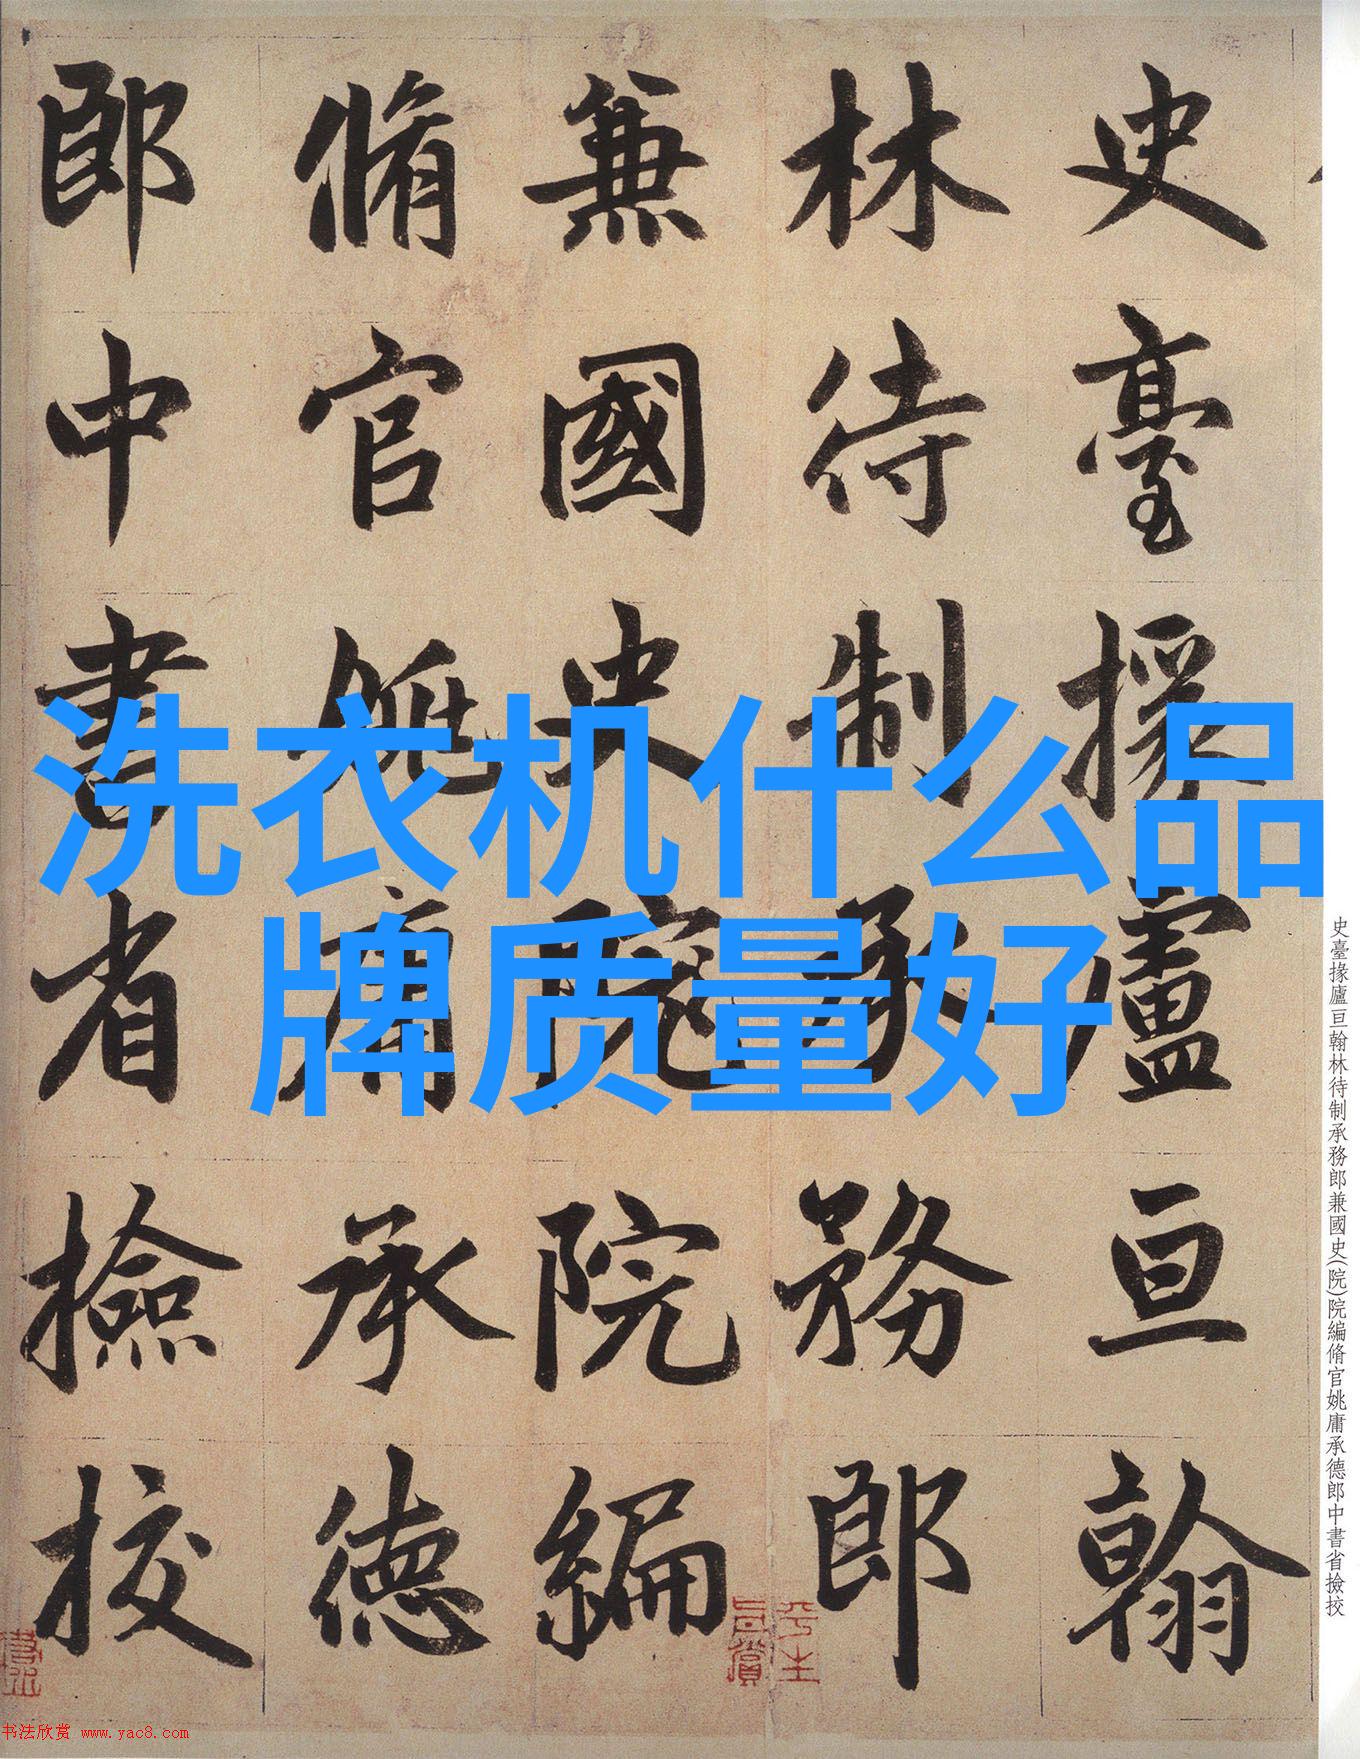 洗衣机什么品
牌质量好
史臺掾廬亘翰
林待制承務郎
兼國史院院編
脩官姚庸承德
郎中書省撿挍
史臺掾廬亘翰林待制承務郎兼國史(院)院編脩官姚庸承德郎中書省撿挍
书法欣赏 www.yac8.com